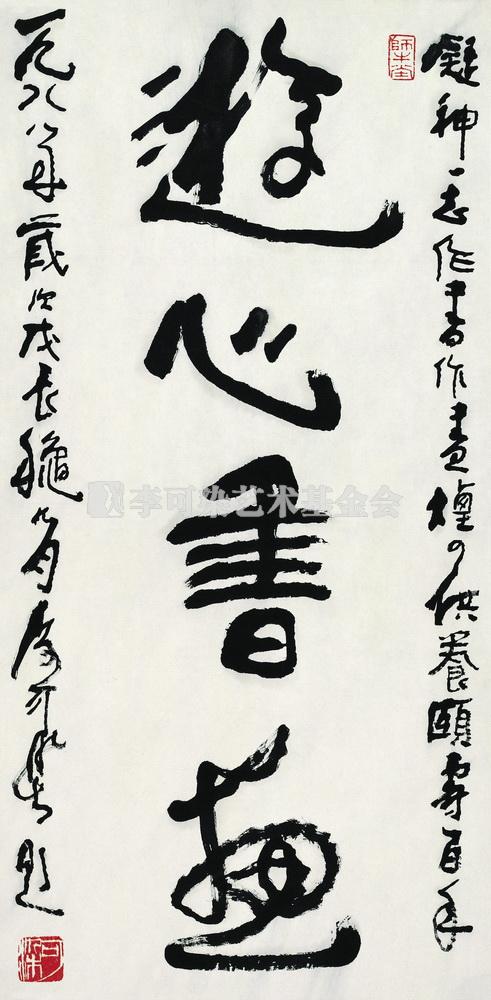 凝神一志作書作畫煙雲供養頤壽百年
遊心書畫
一九八八年歲次戊辰龝九月李可染題
師牛堂
可染
李可染艺术基金会